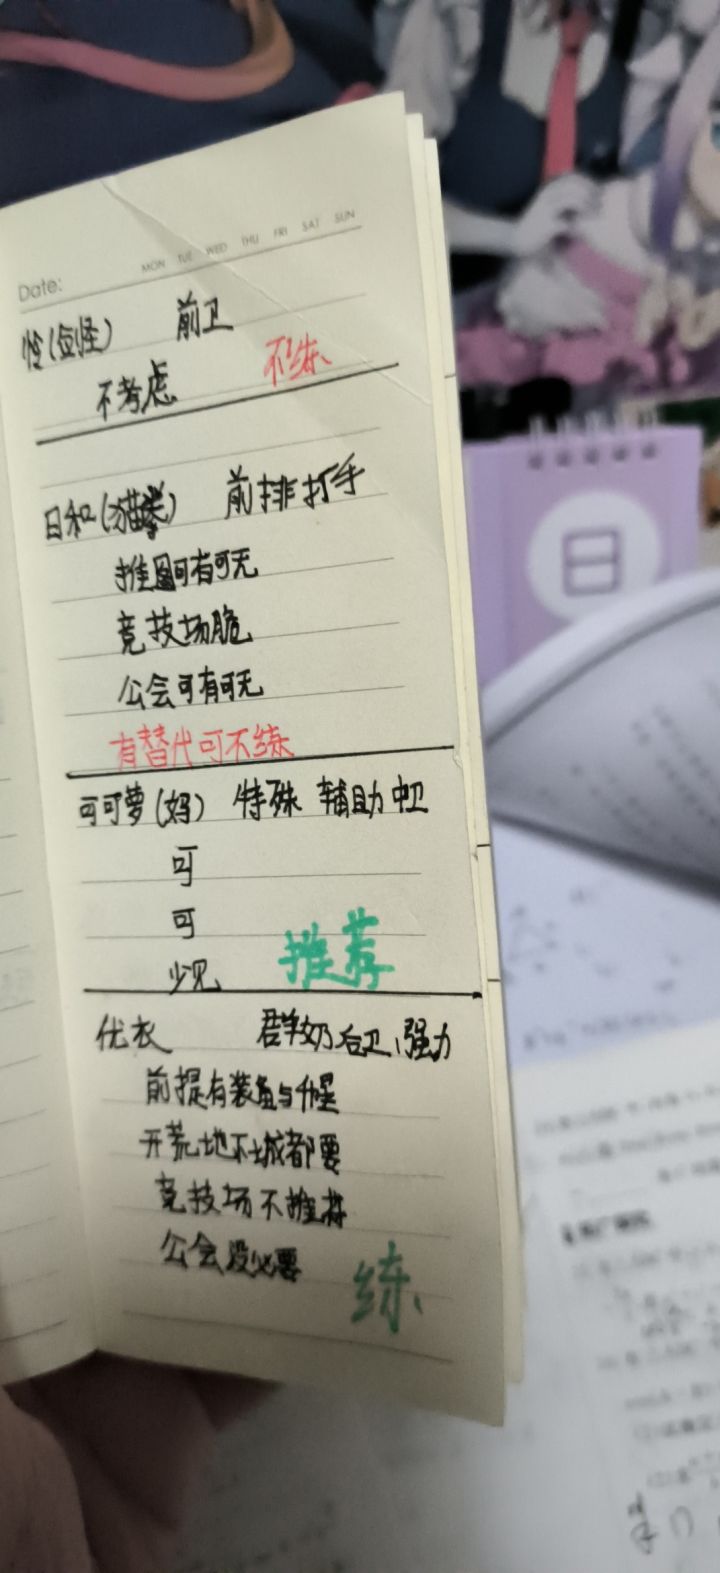 Date:
MON TUE WED THU FRI SAT SUN
怜(剑怪) 前卫
不考虑 不练、
日和(猫拳) 前排打手
推图可有可无
竞技场脆
公会可有可无
有替代可不练
可可萝(妈) 特殊 辅助 中卫
可
可
少见 推荐
优衣 群奶后卫、强力
前提有装备与升星
开荒地下城都要
竞技场不推荐
公会没必要
练、
日